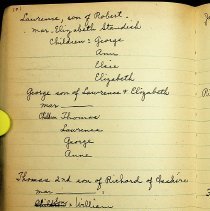 Lawrence, son of Robert.
mar. Elizabeth Standish
Children: George
Ann
Elsie
Elizabeth
George son of Lawrence & Elizabeth
mar
Thomas
Lawrence
George
Anne
Thomas 2nd son of Richard of
mar
William